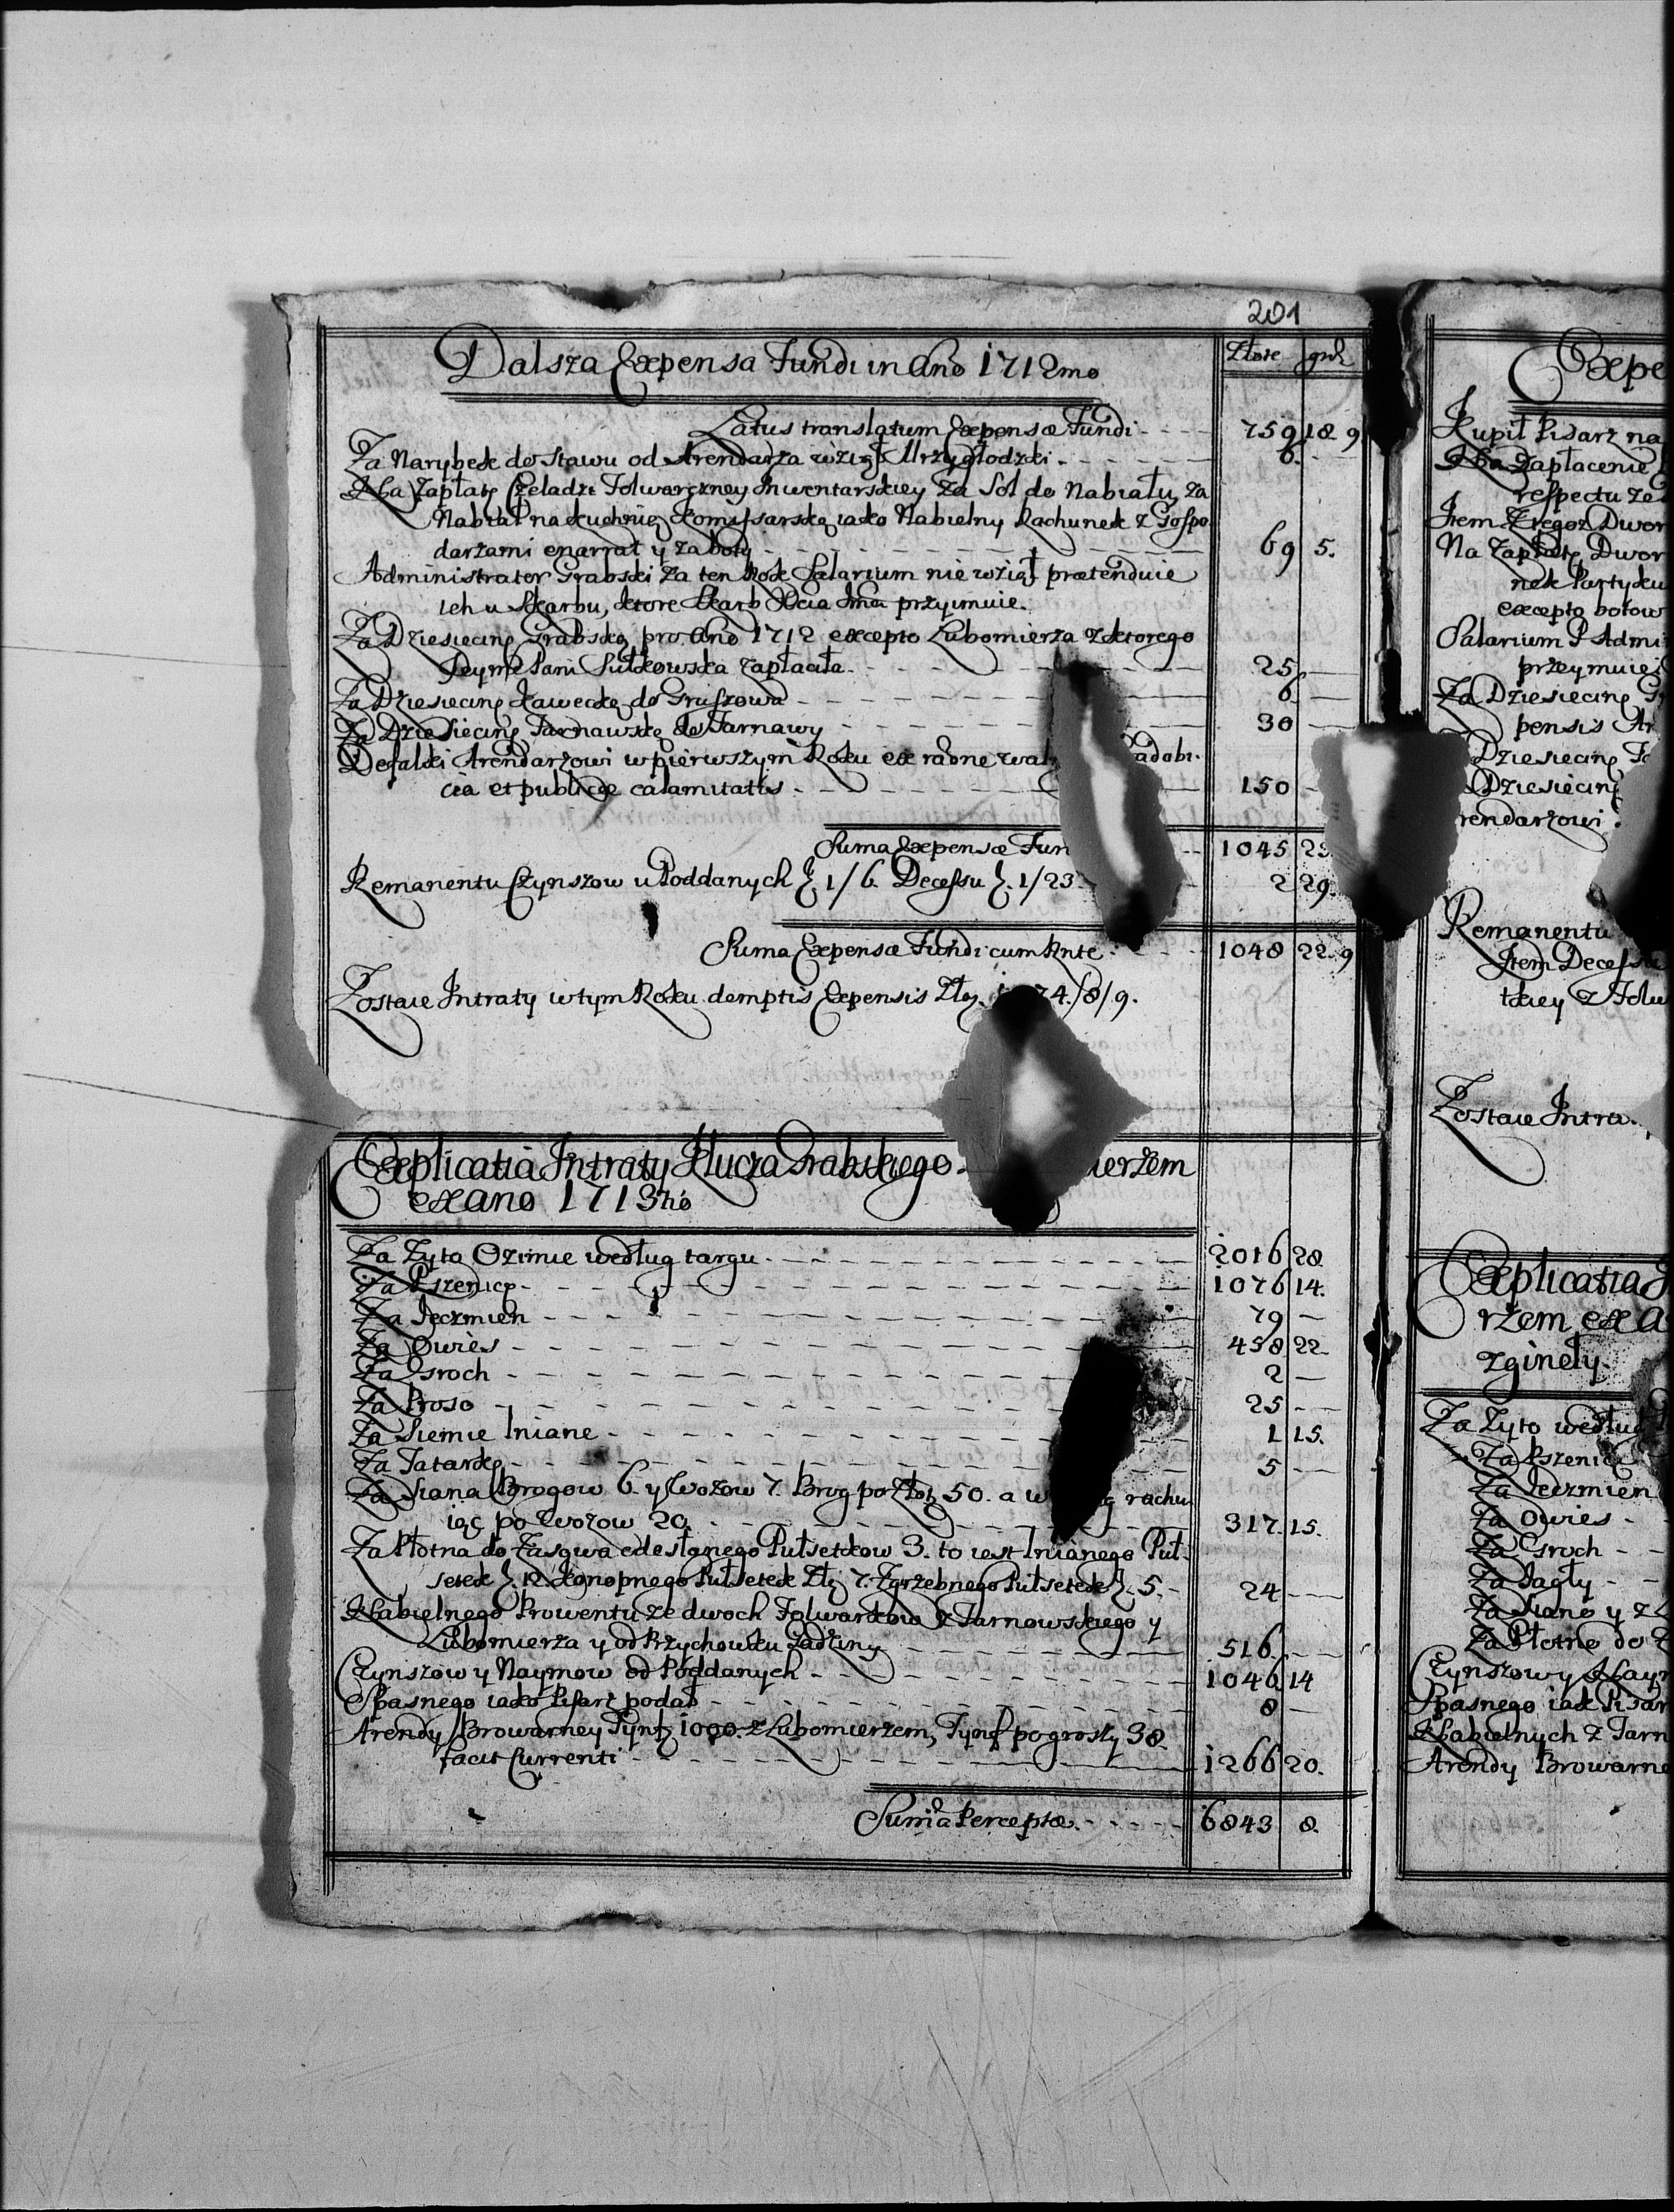 201
Dalsza Expensa Fundi in Ano 1712mo
Złote grsz
Latus translatum Expensæ Fundi 759 18 9
Za Narybek do stawu od Arendarza wziął Mrzygłodzki 6
Na Zapłatę Czeladzi Folwarczney Inwentarskiey Za Sol do Nabiału, Za
Nabiał na kuchnię Komyssarską iako Nabielny Rachunek z Gospo
darzami enarrat y za boty 69 5.
Administrator Grabski Za ten Rok Salarium nie wziął prætenduie
ich u Skarbu, ktore Skarb przyimuie.
Za Dziesięcinę Grabską pro Ano 1712 excepto Lubomierza z ktorego
Jeyme Pani Sułkowska zapłaciła 25
Za Dziesięcinę Ławecką do Gruszowa 6
Za Dziesięcinę Tarnawską do Tarnawy 30
Defalki Arendarzowi w pierwszym Roku ex radne
cia et publicæ calamitatis 150
Suma Expensæ Fun 1045 23
Remanentu Czynszow u Poddanych Zł. 1/6. Decessu Zł. 1/23 2 29.
Suma Expensæ Fundi cum Rnte 1048 22 9
Zostaie Intraty w tym Roku demptis Expensis Złoz. 74./8/9.
Explicatia Intraty Klucza Grabskiego ierzem
ex ano 1713tio
Za Zyto Ozimie według targu 2016 28.
Za Pszenicę 1076 14.
Za Jęczmien 79
Za Owies 458 22
Za Groch 2
Za Proso 25
Za Siemie lniane 1 15.
Za Tatarkę 5
Za Siana Brogow 6. y Wozow 7. Brog po Złotz 50. a w rachu
iąc po Wozow 20 317. 15.
Za Płotna do Zasowa odesłanego Pułsetkow 3. to iest lnianego Puł-
setek Zł. 12. Konopnego Pułsetek Złz 7. Zgrzebnego Pułsetek Zł. 5. 24
Nabielnego Prowentu ze dwoch Folwarkow z Tarnowskiego y
Lubomierza y od Przychowku Gadziny 516.
Czynszow y Naymow od Poddanych 1046 14
Spasnego iako Pisarz podał 8
Arendy Browarney Tynf 1000. z Lubomierzem, Tynf po groszy 38
facit Currenti 1266 20.
Suma Perceptæ 6843 8.
Expe
Kupił Pisarz na
Na Zapłacenie
respectu ze
Item Zregoz Dwor
Na Zapłatę Dwor
nek Partyku
excepto botow
Salarium P Admi
przeymuie
Za Dziesięcinę G
pensis Ar
Dziesięcinę Ta
Dziesięcinę
rendarzowi
Remanentu
Item Decessu
tkiey z Folw
Zostaie Intra
Explicatia I
rzem ex A
zginęły.
Za Zyto według
Za Pszenicę
Za Jęczmien
Za Owies
Za Groch
Za Jagły
Za Siano y z
Za Płotno do Z
Czynszow y Naym
Spasnego iak Pisar
Nabielnych z Tarn
Arendy Browarne